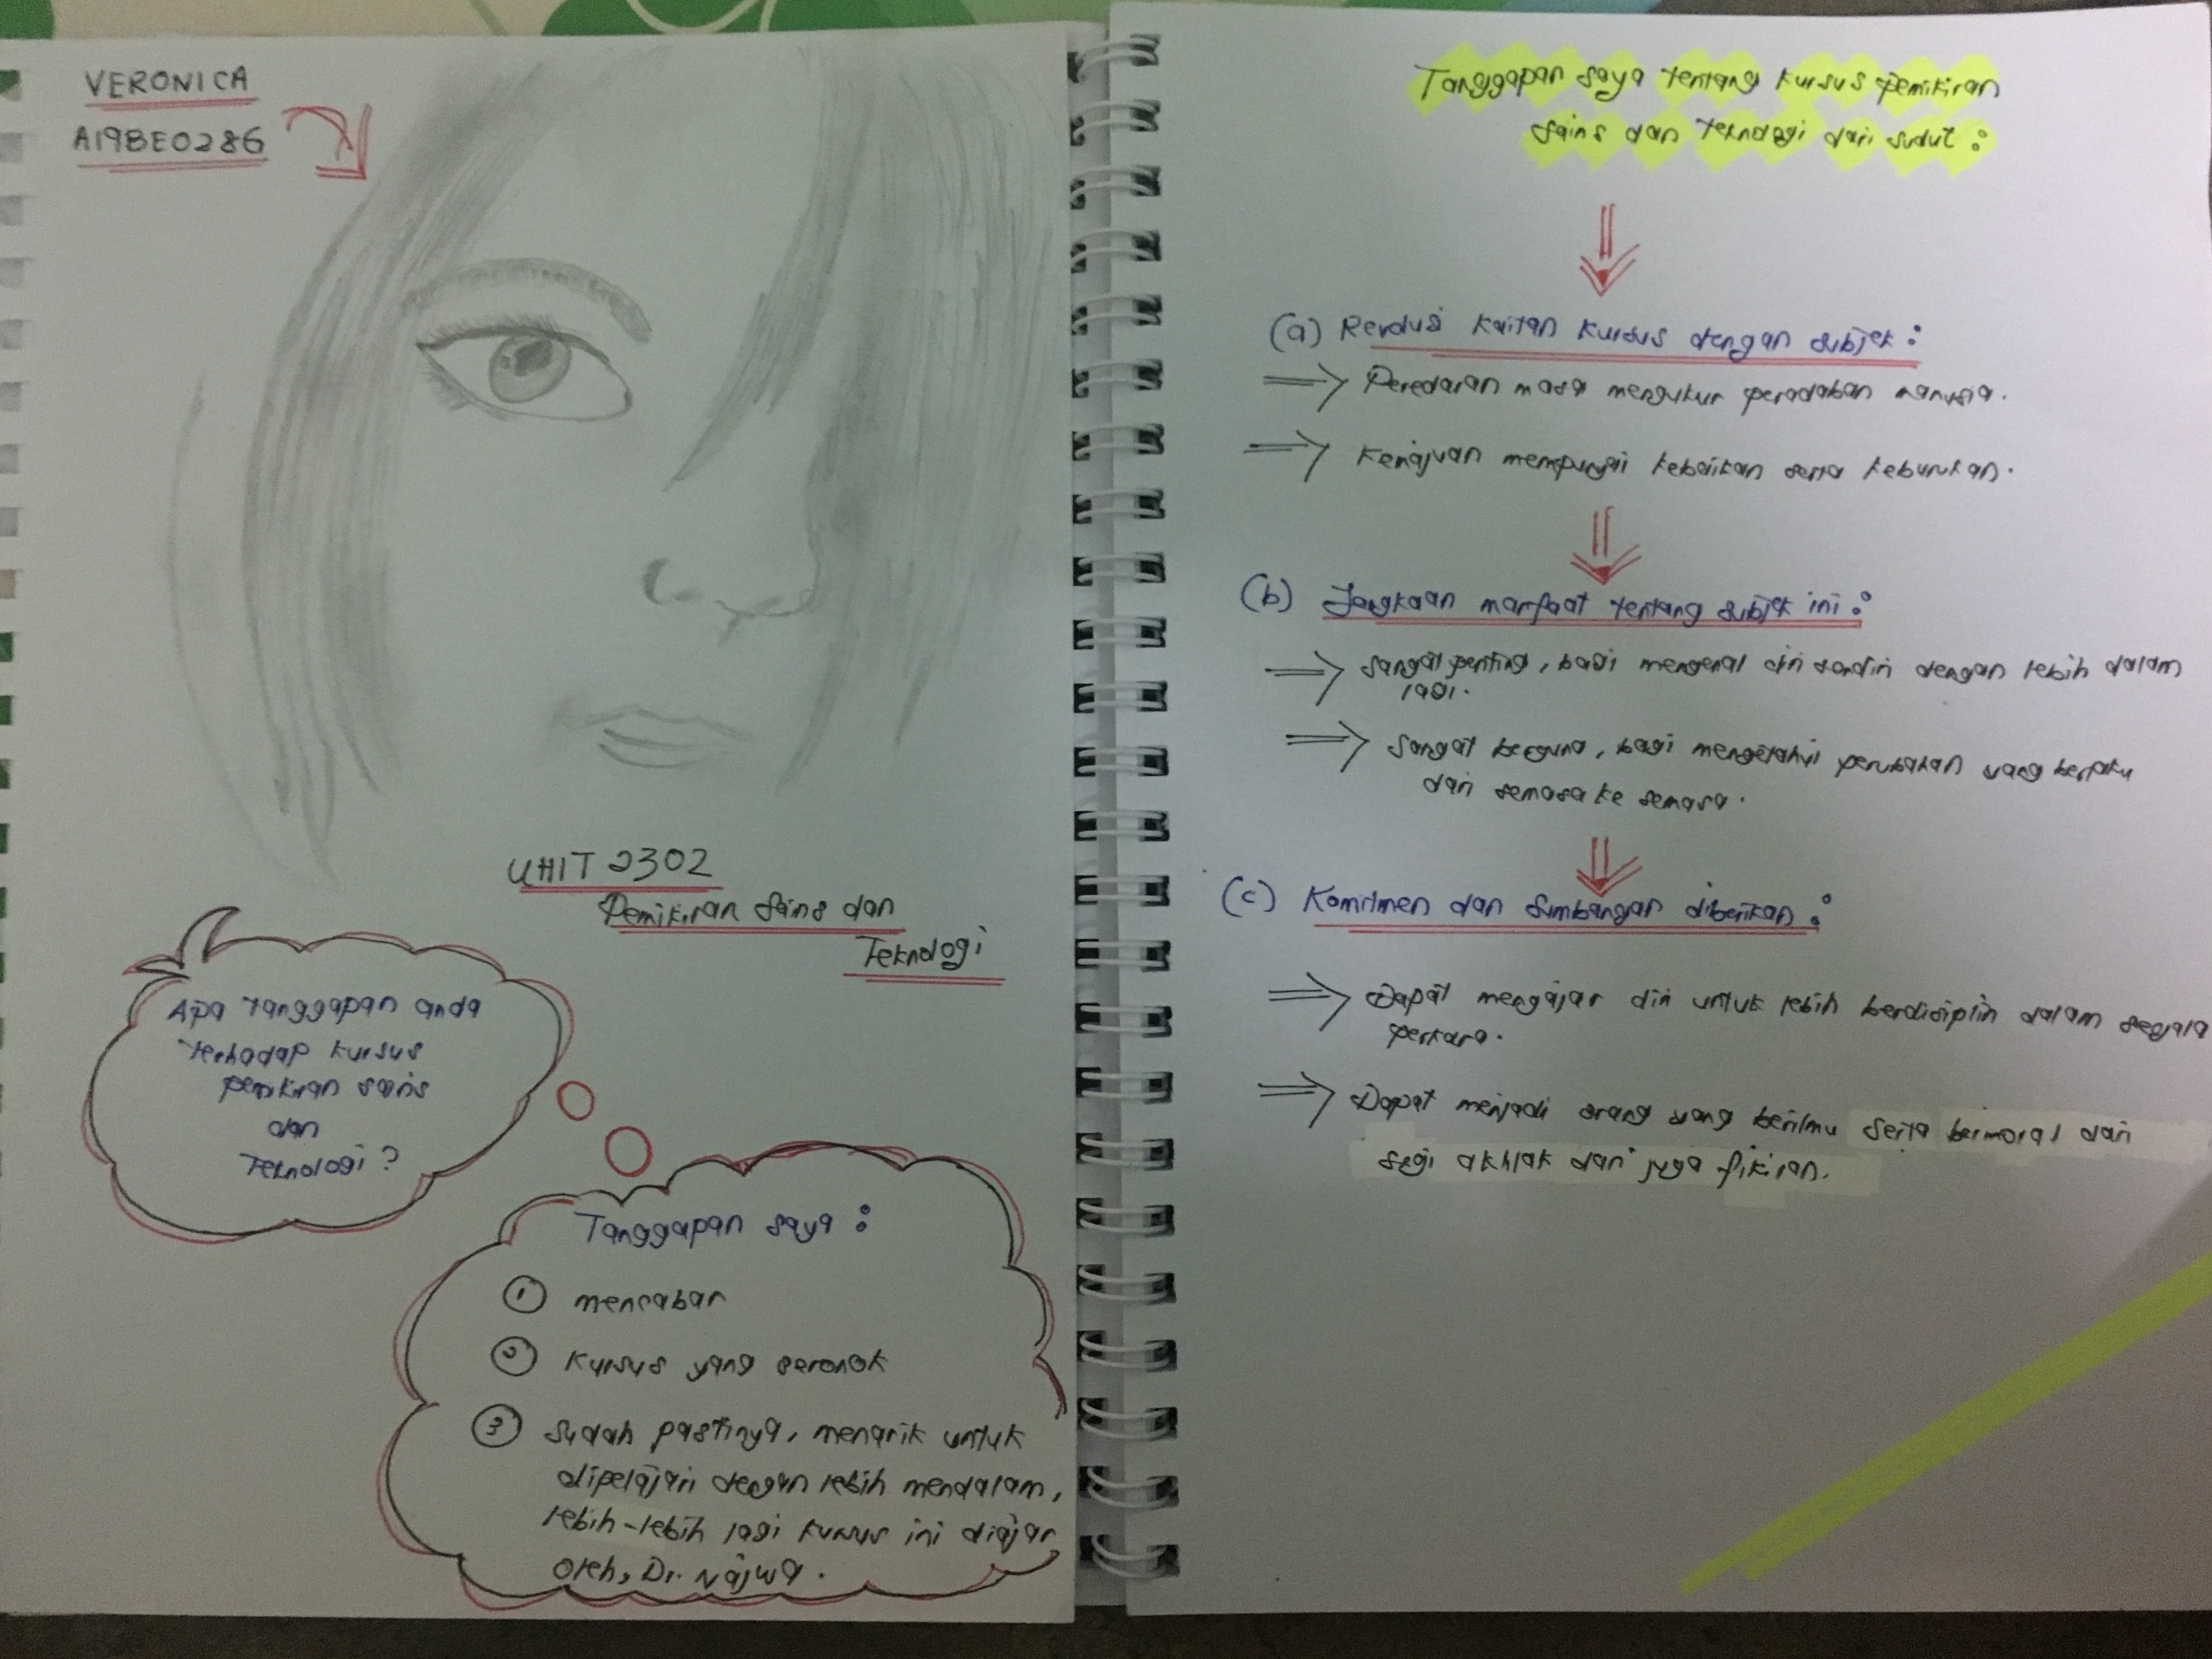 VERONICA
A19BE0286
UHIT 2302
Pemikiran Sains dan
Teknologi
Apa tanggapan anda
terhadap kursus
pemikiran sains
dan
Teknologi?
Tanggapan saya :
1 mencabar
2 kursus yang seronok
3 Sudah pastinya, menarik untuk
dipelajari dengan lebih mendalam,
lebih-lebih lagi kursus ini diajar
oleh, Dr. Najwa.
Tanggapan saya tentang kursus pemikiran
sains dan teknologi dari sudut :
(a) kaitan kursus dengan subjek :
⇒ Peredaran masa mengukur peradaban manusia.
⇒ Kemajuan mempunyai kebaikan serta keburukan.
(b) Jangkaan manfaat tentang subjek ini :
⇒ Sangat penting, bagi mengenal diri sendiri dengan lebih dalam
lagi.
⇒ Sangat berguna, bagi mengetahui perubahan yang berlaku
dari semasa ke semasa.
(c) Komitmen dan Sumbangan diberikan :
⇒ Dapat mengajar diri untuk lebih berdisiplin dalam segala
perkara.
⇒ Dapat menjadi orang yang berilmu serta bermoral dari
segi akhlak dan juga fikiran.